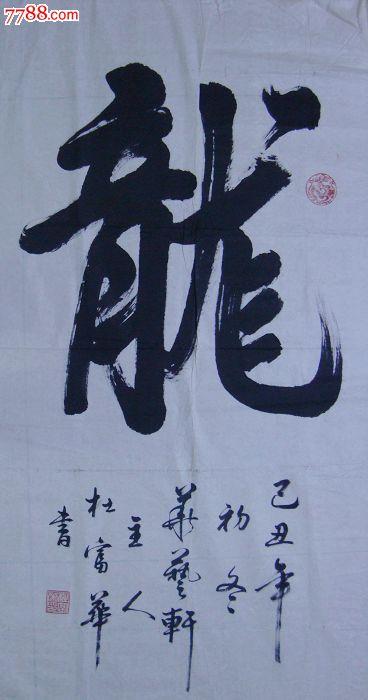 7788.com
龍
己丑年
初冬
華藝軒
主人
杜富華
書